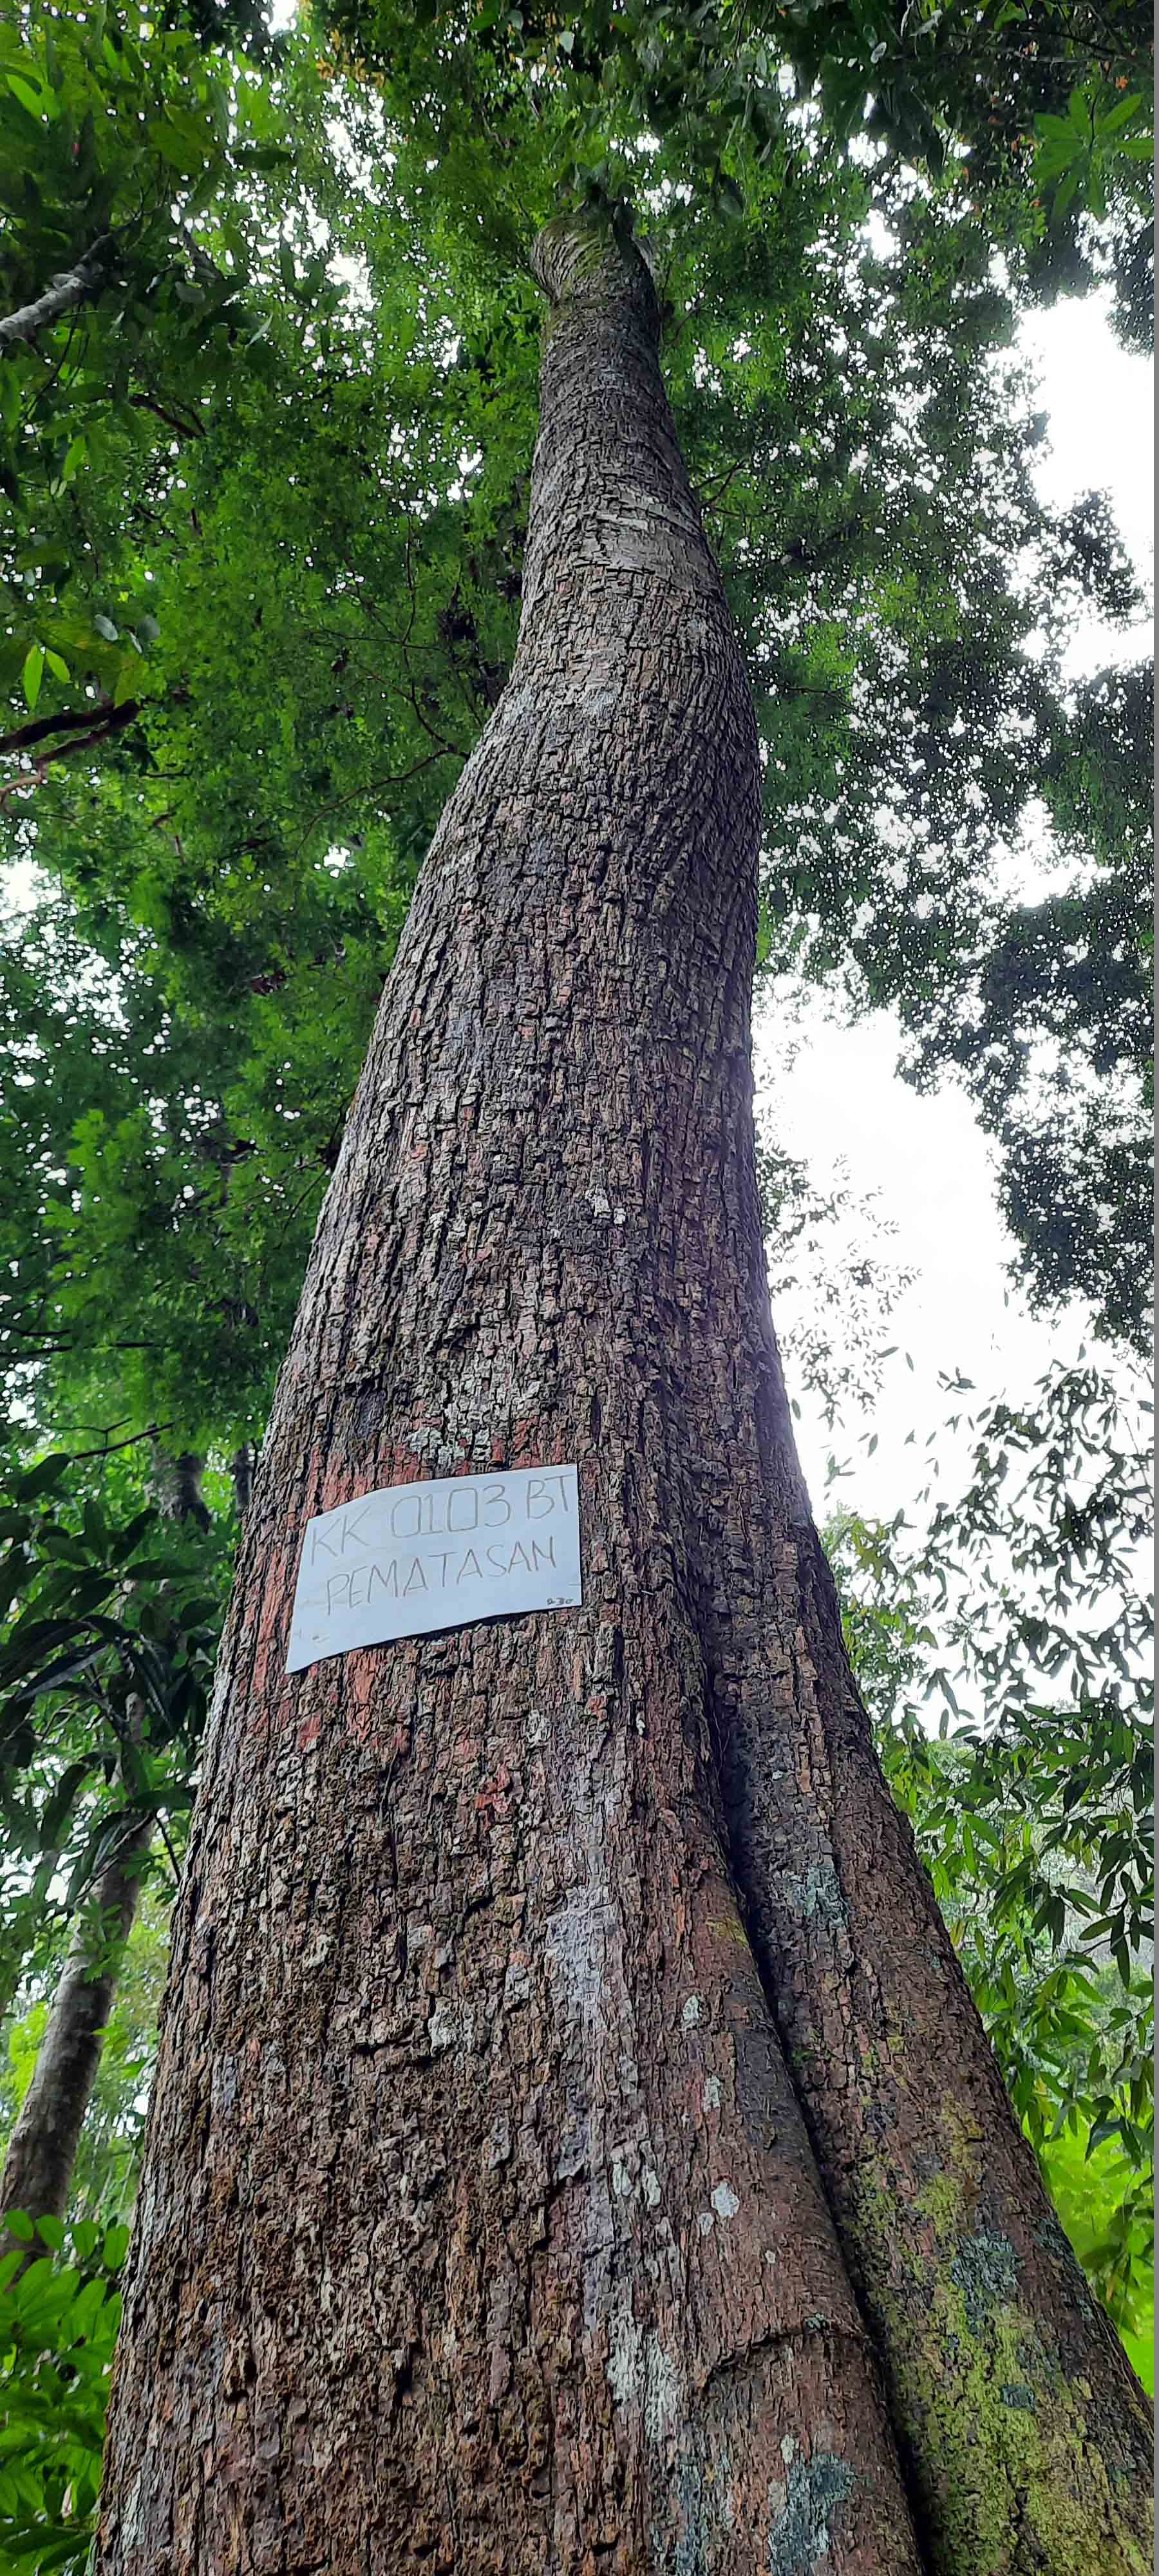 KK 0103 BT
PEMATASAN